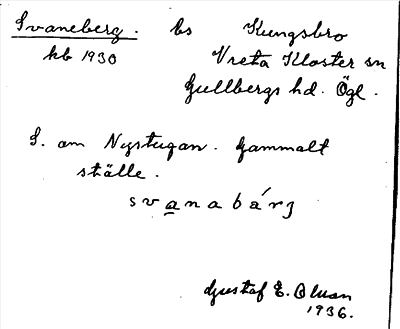 Svaneberg. bs Kungsbro
kb 1930 Vreta Kloster sn
Gullbergs hd. Ögl.
S. om Nystugan. Gammalt
ställe.
svanabárj
Gustaf E. Olsson
1936.